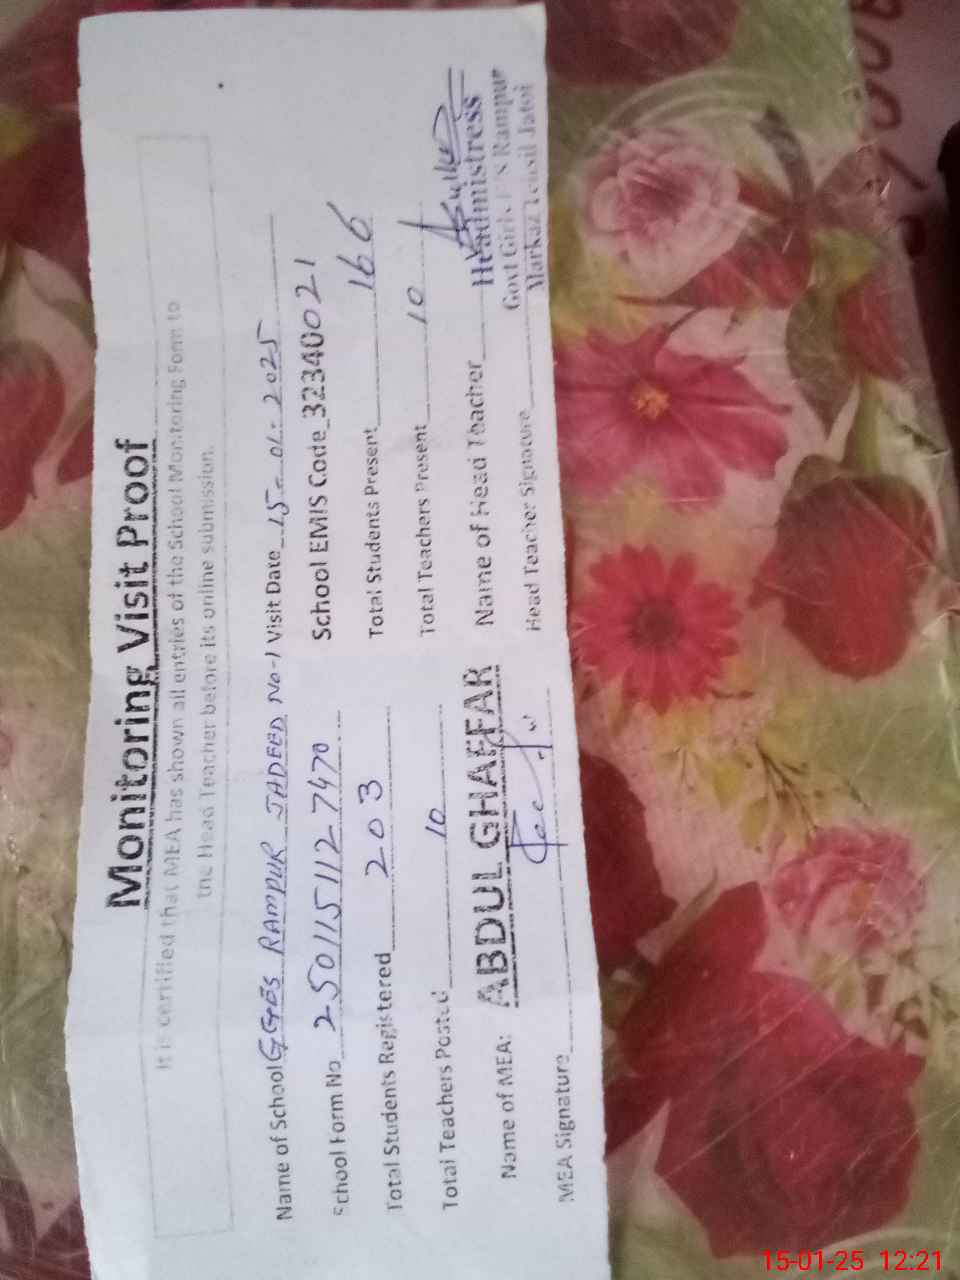 Monitoring Visit Proof
It is certified that MEA has shown all entries of the School Monitoring Form to
the Head Teacher before its online submission.
Name of School GGES RAMPUR JADEED No-1 Visit Date 15-01-2025
School Form No 25011511127470 School EMIS Code 32340021
Total Students Registered 203 Total Students Present 166
Total Teachers Posted 10 Total Teachers Present 10
Name of MEA: ABDUL GHAFFAR Name of Head Teacher
MEA Signature Head Teacher Signature
Headmistress
Govt Girls E/S Rampur
Markaz Tehsil Jatoi
15-01-25 12:21